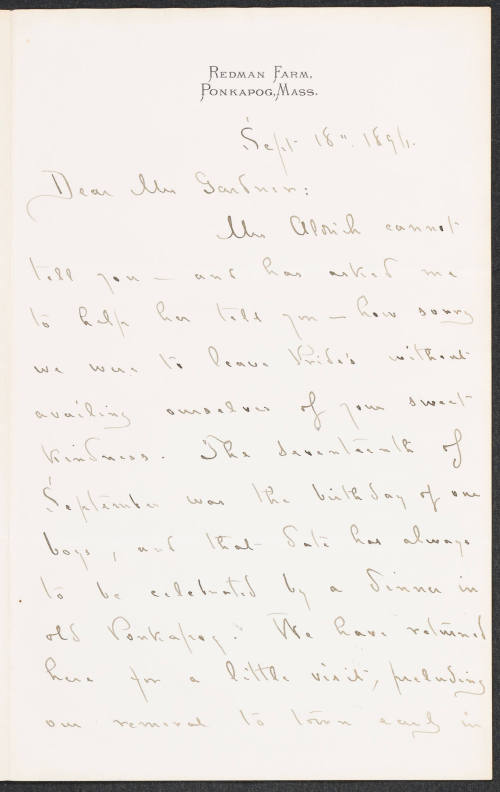 Redman Farm,
Ponkapog, Mass.
Sept 18". 1894.
Dear Mrs Gardner:
Mrs Aldrich cannot
tell you — and has asked me
to help her tell you — how sorry
we were to leave Pride's without
availing ourselves of your sweet
kindness. The seventeenth of
September was the birthday of our
boys, and that date has always
to be celebrated by a dinner in
old Ponkapog. We have returned
here for a little visit, preluding
our removal to town early in